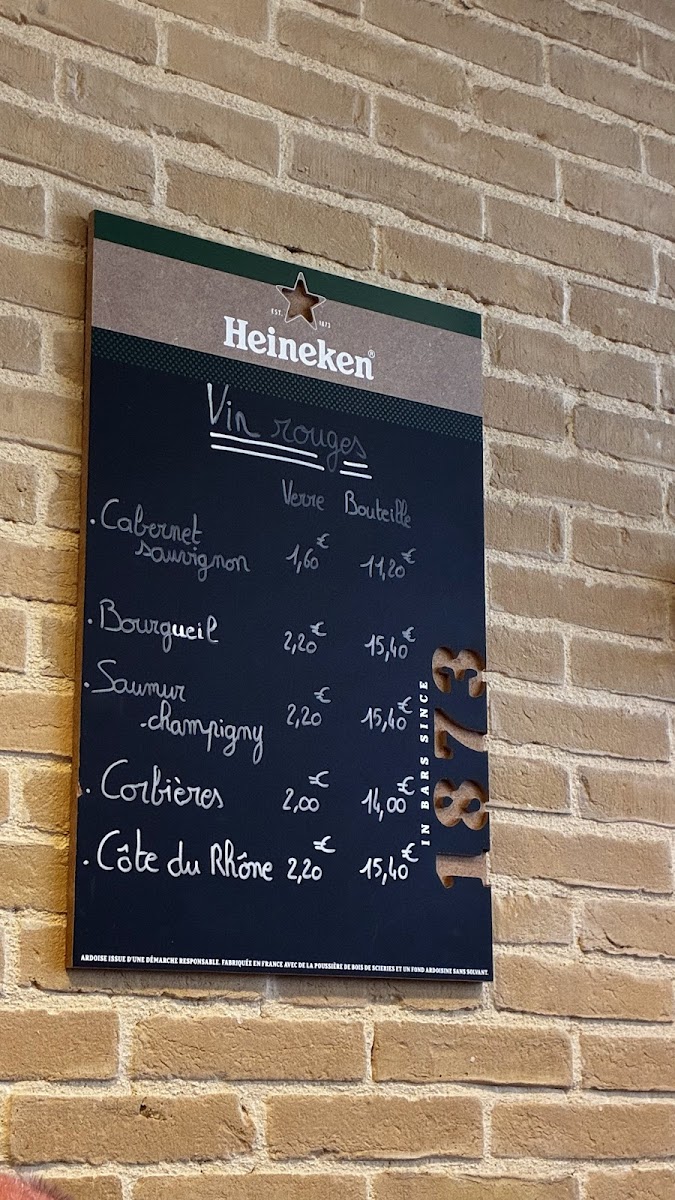 EST. 1873
Heineken®
Vin rouges
Verre Bouteille
. Cabernet
sauvignon 1,60€ 11,20€
. Bourgueil 2,20€ 15,40€
. Saumur
-champigny 2,20€ 15,40€
. Corbières 2,00€ 14,00€
. Côte du Rhône 2,20€ 15,40€
IN BARS SINCE
1873
ARDOISE ISSUE D'UNE DÉMARCHE RESPONSABLE. FABRIQUÉE EN FRANCE AVEC DE LA POUSSIÈRE DE BOIS DE SCIERIES ET UN FOND ARDOISINE SANS SOLVANT.